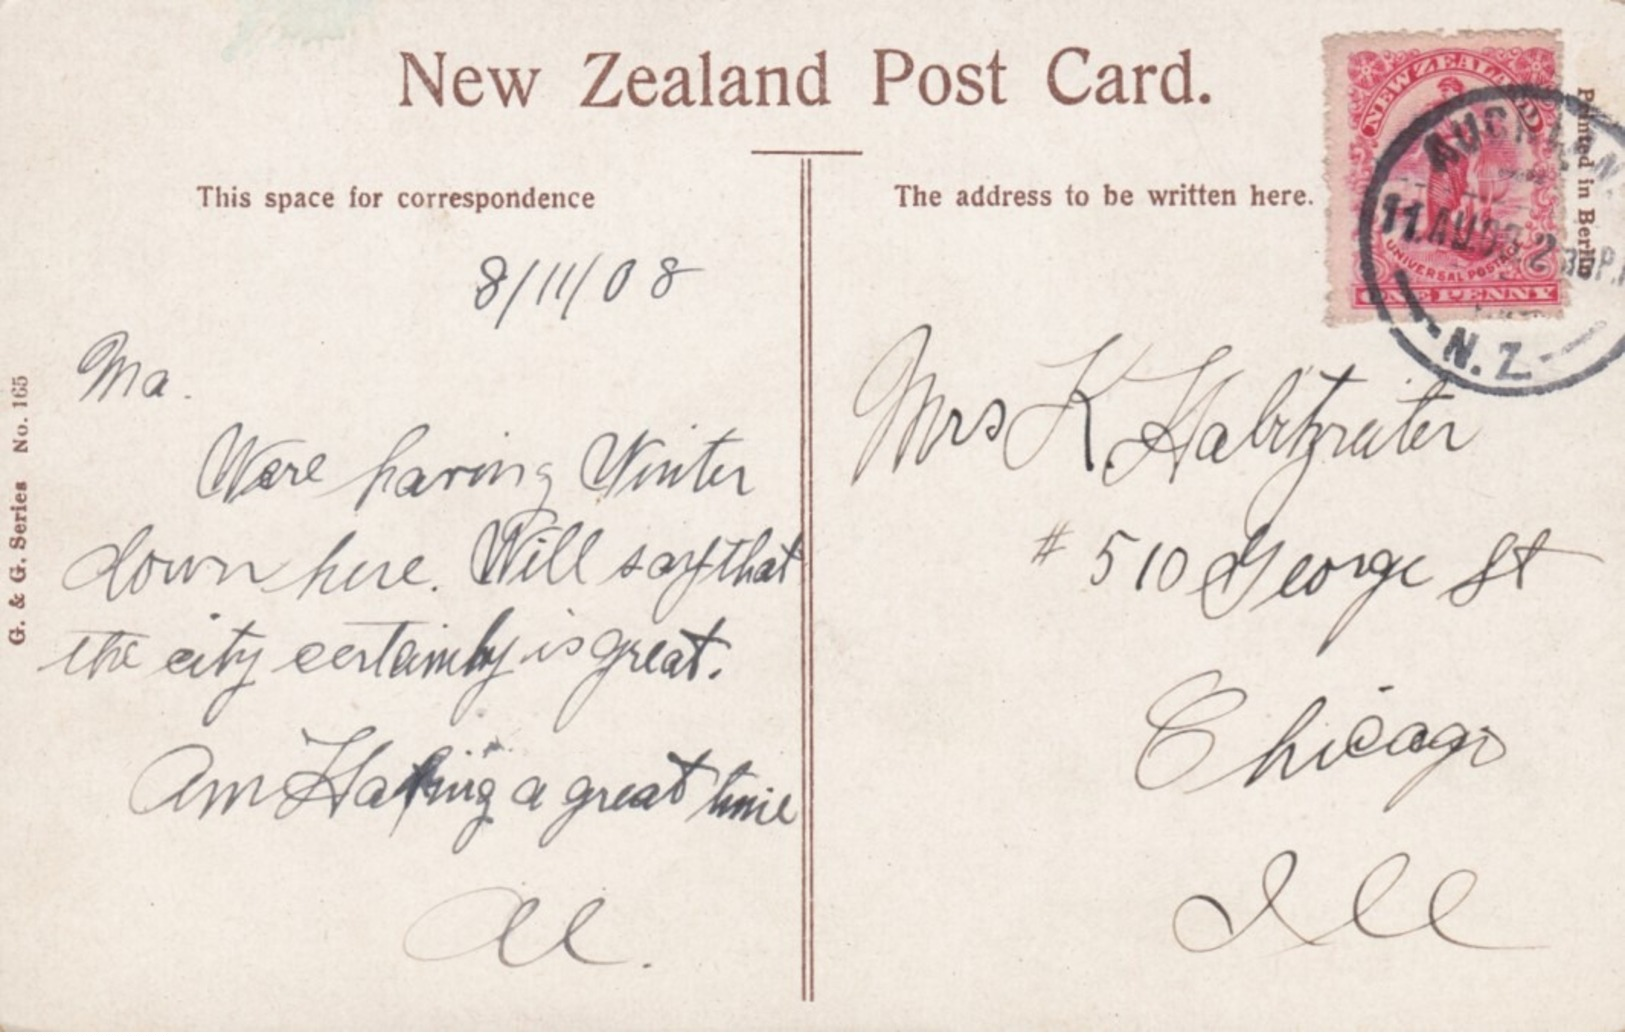 New Zealand Post Card.
This space for correspondence
The address to be written here.
8/11/08
Ma.
Were having Winter
down here. Will say that
the city certainly is great.
Am Having a great time
Al.
Mrs K Habitzreiter
# 510 George St
Chicago
Ill
NEW ZEALAND
UNIVERSAL POSTAGE
ONE PENNY
N.Z.
Printed in Berlin
G. & G. Series No. 165